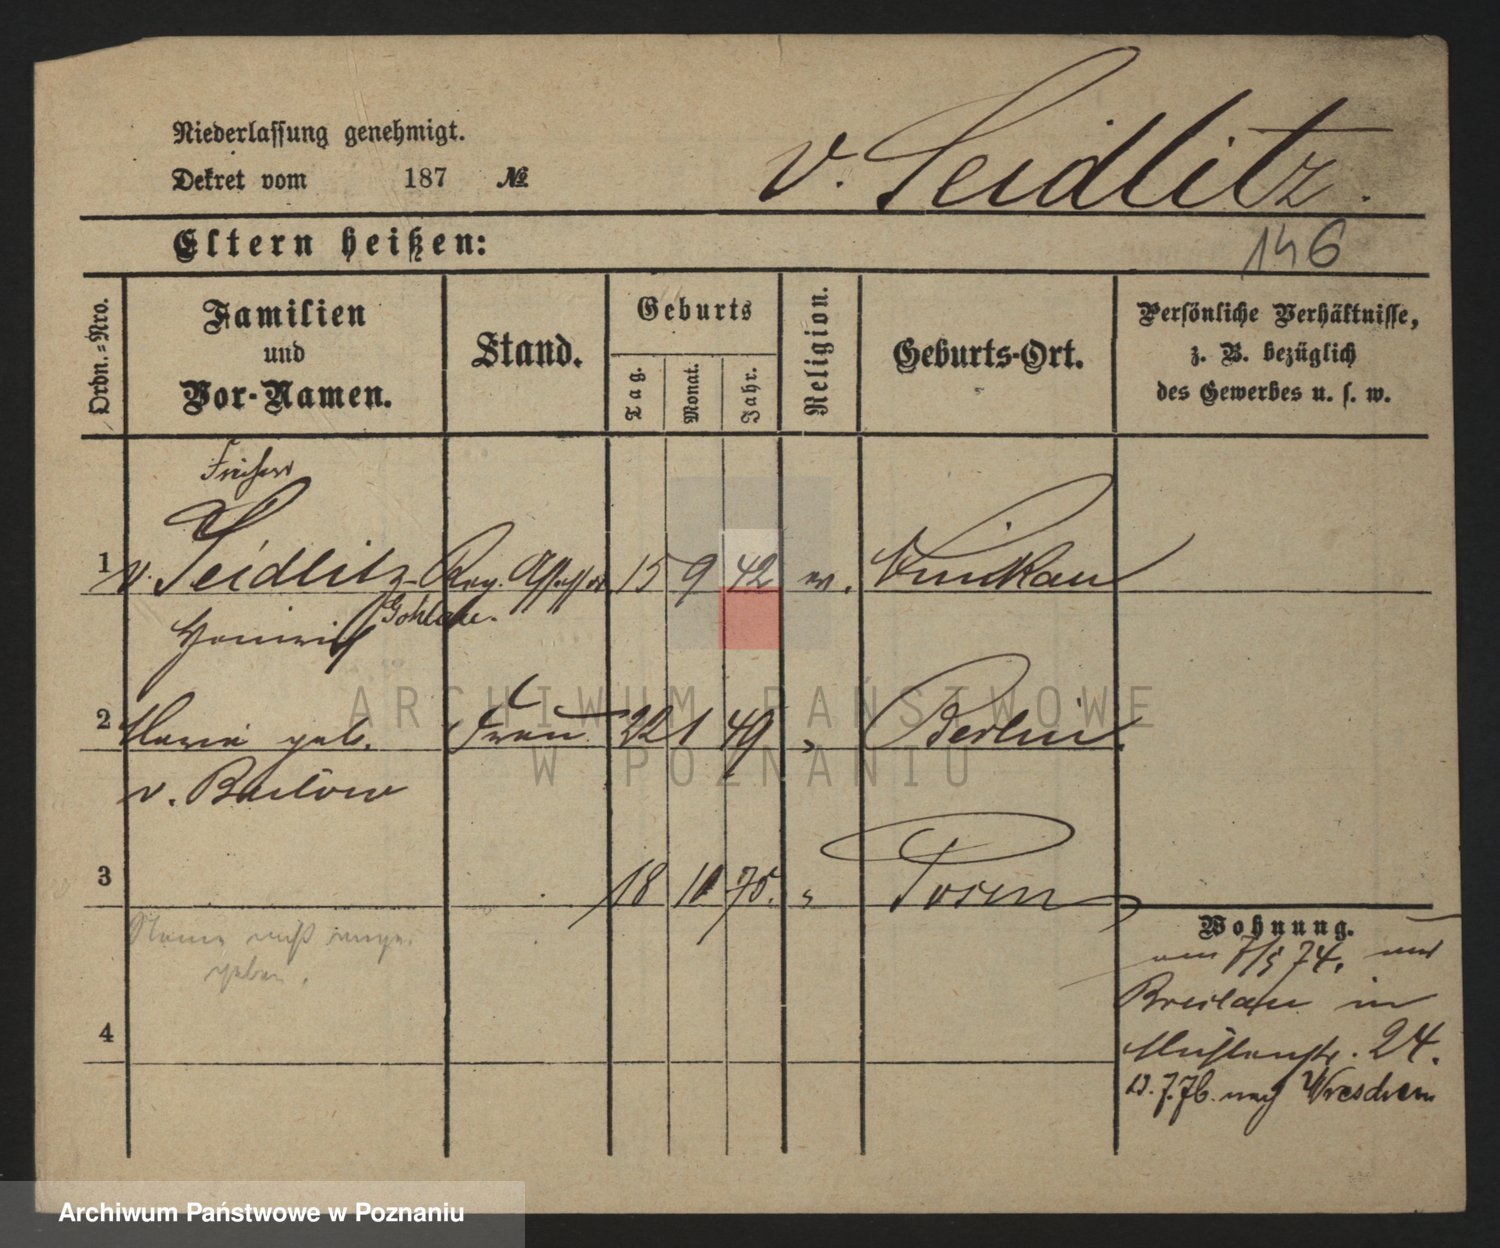 Niederlassung genehmigt.
Dekret vom 187 №
v. Seidlitz.
Eltern heißen:
146
Ordn.=Nro.
Familien
und
Vor-Namen.
Stand.
Geburts
Tag.
Monat.
Jahr.
Religion.
Geburts-Ort.
Persönliche Verhältnisse,
z. B. bezüglich
des Gewerbes u. s. w.
Freiherr
1 v. Seidlitz- Reg. Assessor 15 9 42 ev.
Gohlau.
Heinrich
2 Marie geb. Frau 22 1 49 " Berlin.
v. Buelow
3 18 11 75. " Posen
Name nicht ange-
geben.
4
Wohnung.
am 7/5 74. aus
Breslau in
Mühlenstr. 24.
7.76. nach Wreschen
ARCHIWUM PAŃSTWOWE
W POZNANIU
Archiwum Państwowe w Poznaniu